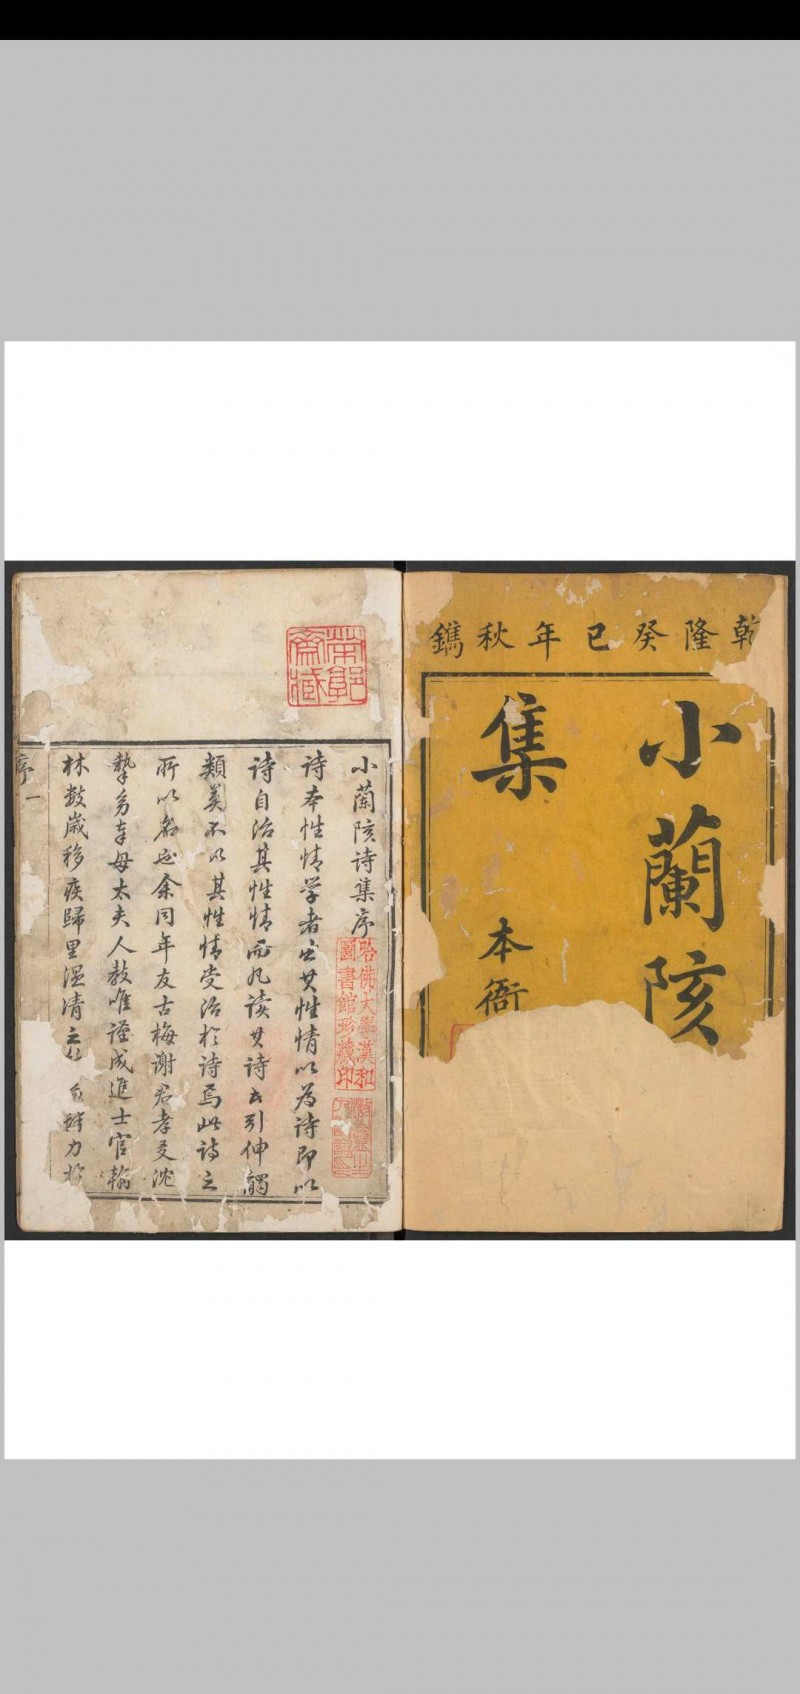 乾隆癸巳年秋鐫
小蘭陔
集
本衙
小蘭陔詩集序
詩本性情学者出其性情以為詩即以
詩自治其性情而凡读其诗者引伸觸
類莫不以其性情受治於詩焉此詩之
所以名也余同年友古梅謝君孝友沈
摯身奉母太夫人教唯謹成進士官翰
林数歲移疾歸里温凊之 力於
序
一
哈佛大學漢和圖書館珍藏印